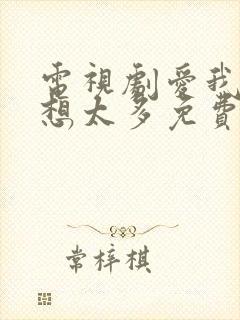 電視劇愛我
想太多免費
常梓棋